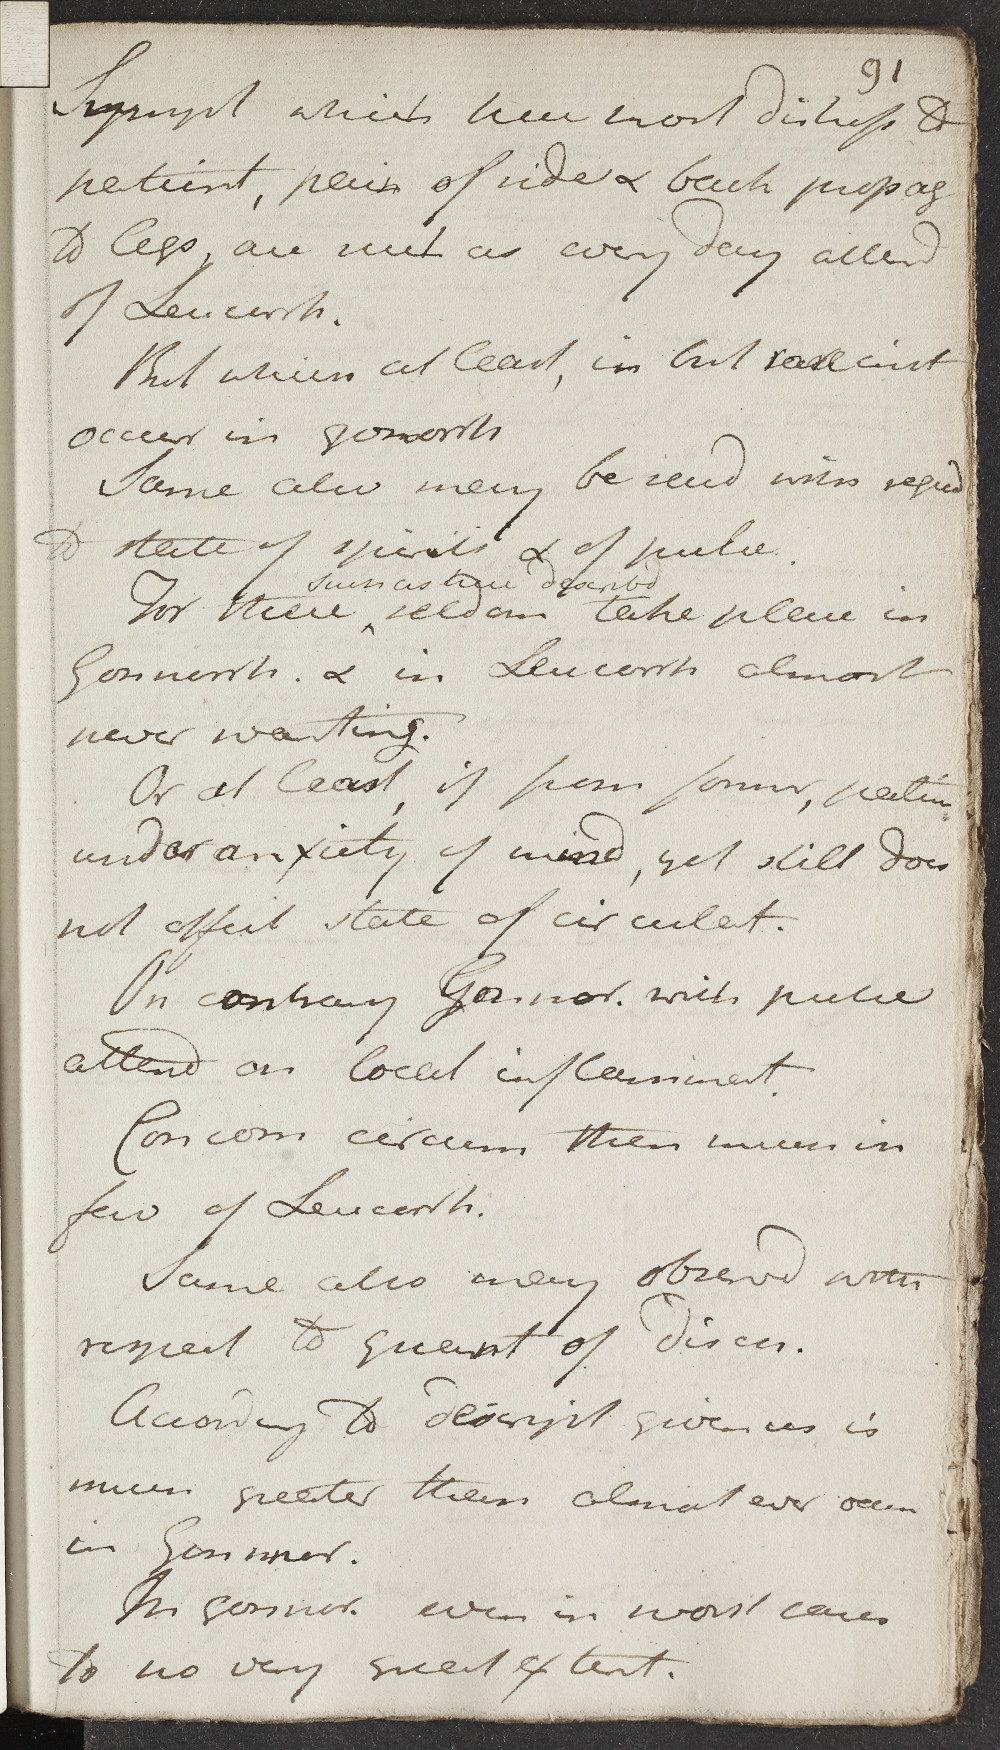 91
Sympt which here most distress to
patient, pain of side & back propag
to legs, are met as every day attend
of Leucorrh.
But which at least, in but rare inst
occur in gonorrh
Same also may be said with regard
to state of spirits & of pulse.
such as here describd
For these ^ seldom take place in
Gonnorrh. & in Leucorrh almost
never wanting.
Or at least, if from former, patient
under anxiety of mind, yet still does
not affect state of circulat.
On contrary Gonnor. with pulse
attend on local inflammat.
Concom circum then much in
fav of Leucorrh.
Same also may observd with
respect to quant of disch.
According to descript given us is
much greater than almost ever occur
in Gonnor.
In gonnor. even in worst cases
to no very great extent.